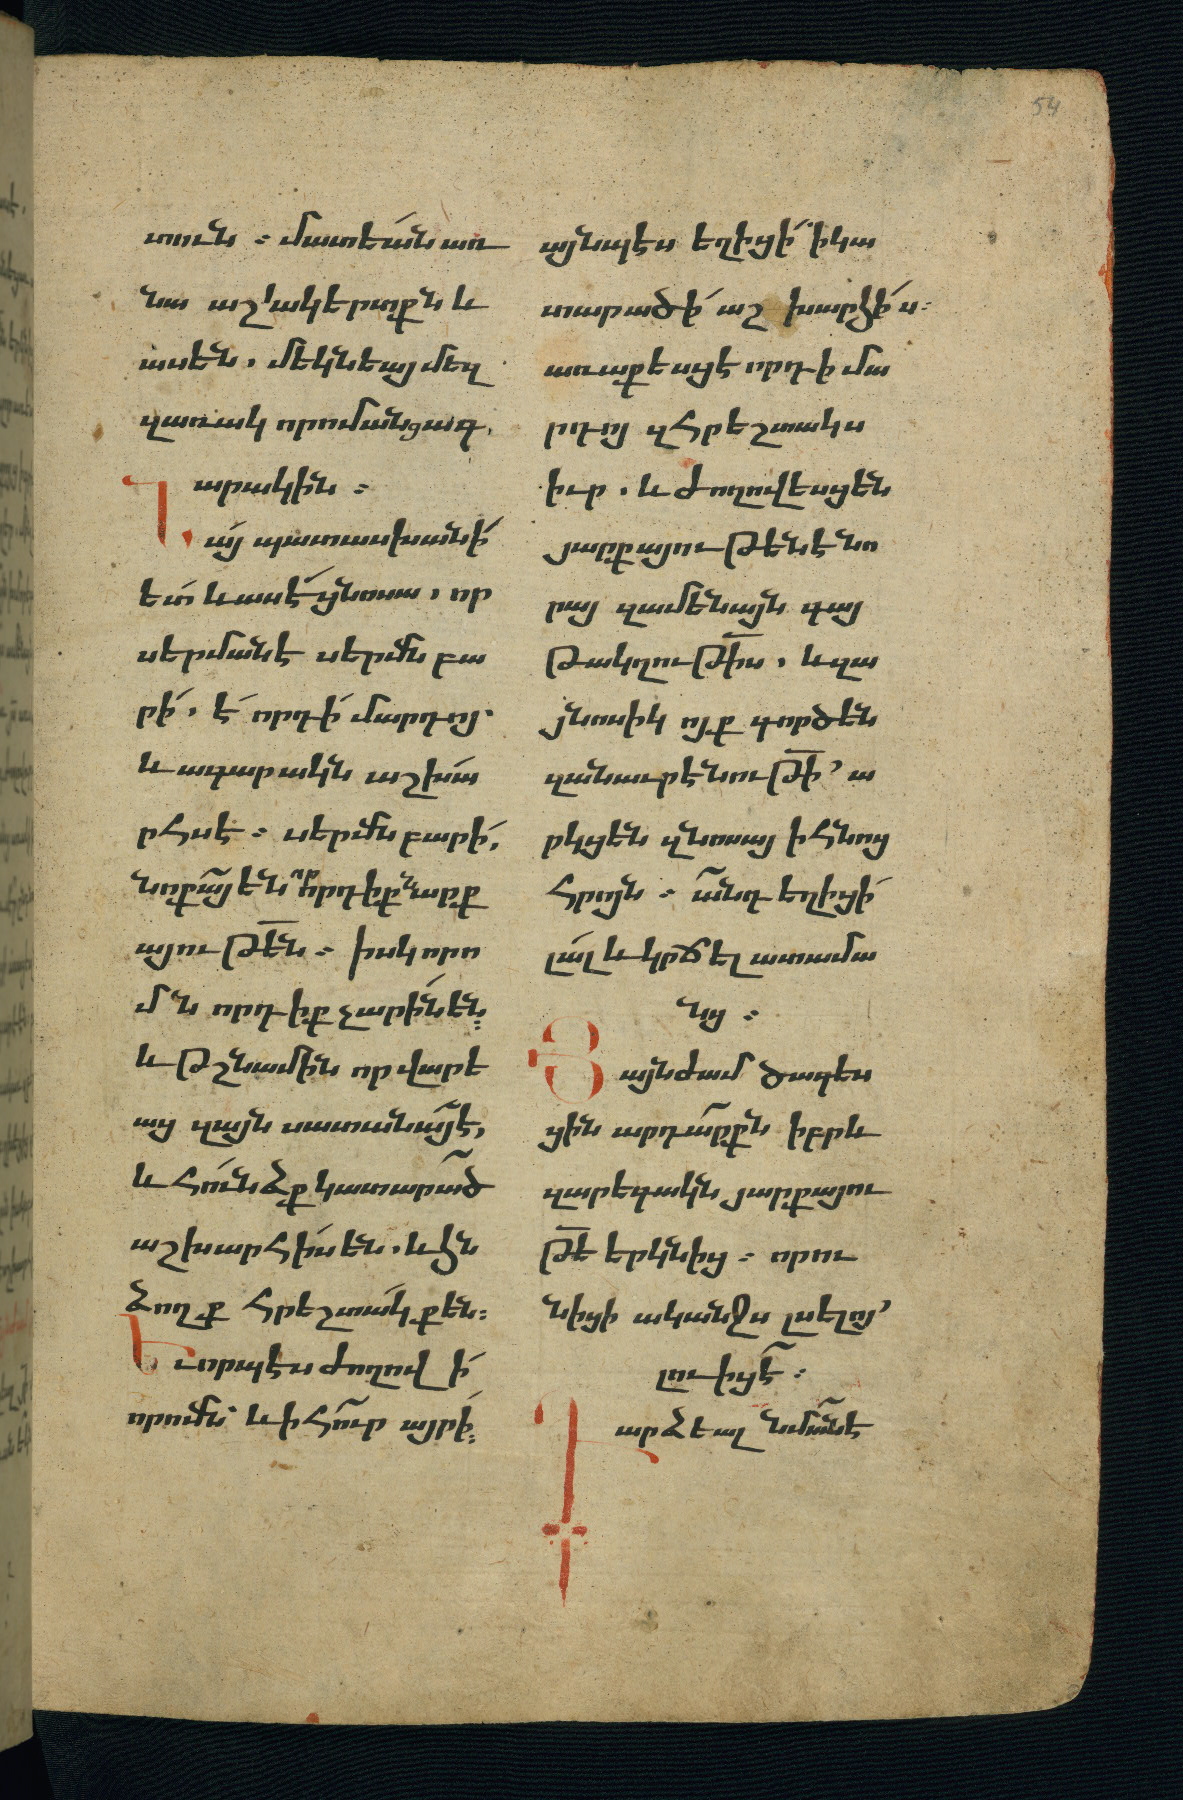 54
տուն ։ մատեան առ
նա աշակերտքն և
ասեն . մեկնեայ մեզ
զառակ որոմանցագ
արակին ։
Նայ պատասխանի
ետ և ասէ ցնոսա . որ
սերմանէ սերմն բա
րի . է որդի մարդոյ .
և ագարակն աշխա
րհսէ ։ սերմն բարի ,
նոքայ են որ որդիքն արք
այութեն ։ իսկ որո
մն որդիք չարին են ։
և թշնամին որ վարե
աց զայն սատանայէ ,
և հունձք կատարած
աշխարհիս են . և հն
ձողք հրեշտակ քեն ։
Եւ որպէս ժողով ի
որոմն և ի հուր այրի ։
այնպէս եղիցի ի կա
տարածի աշխարհէս ։
առաքեսցէ որդի մա
րդոյ զհրեշտակս
իւր . և ժողովեսցեն
յարքայութենէ նո
րայ զամենայն գայ
թակղութիս . և զա
յնոսիկ ոյք գործեն
զանաւրէնութի ՚ ա
րկցեն զնոսայ ի հնոց
հրոյն ։ անդ եղիցի
լալ և կրճել ատամա
նց ։
Յայնժամ ծագես
ցին արդարքն իբրև
զարեգակն յարքայու
թե երկնից ։ որ ու
նիցի ականջս լսելոյ ՚
լուիցէ ։
Դարձեալ նմանէ